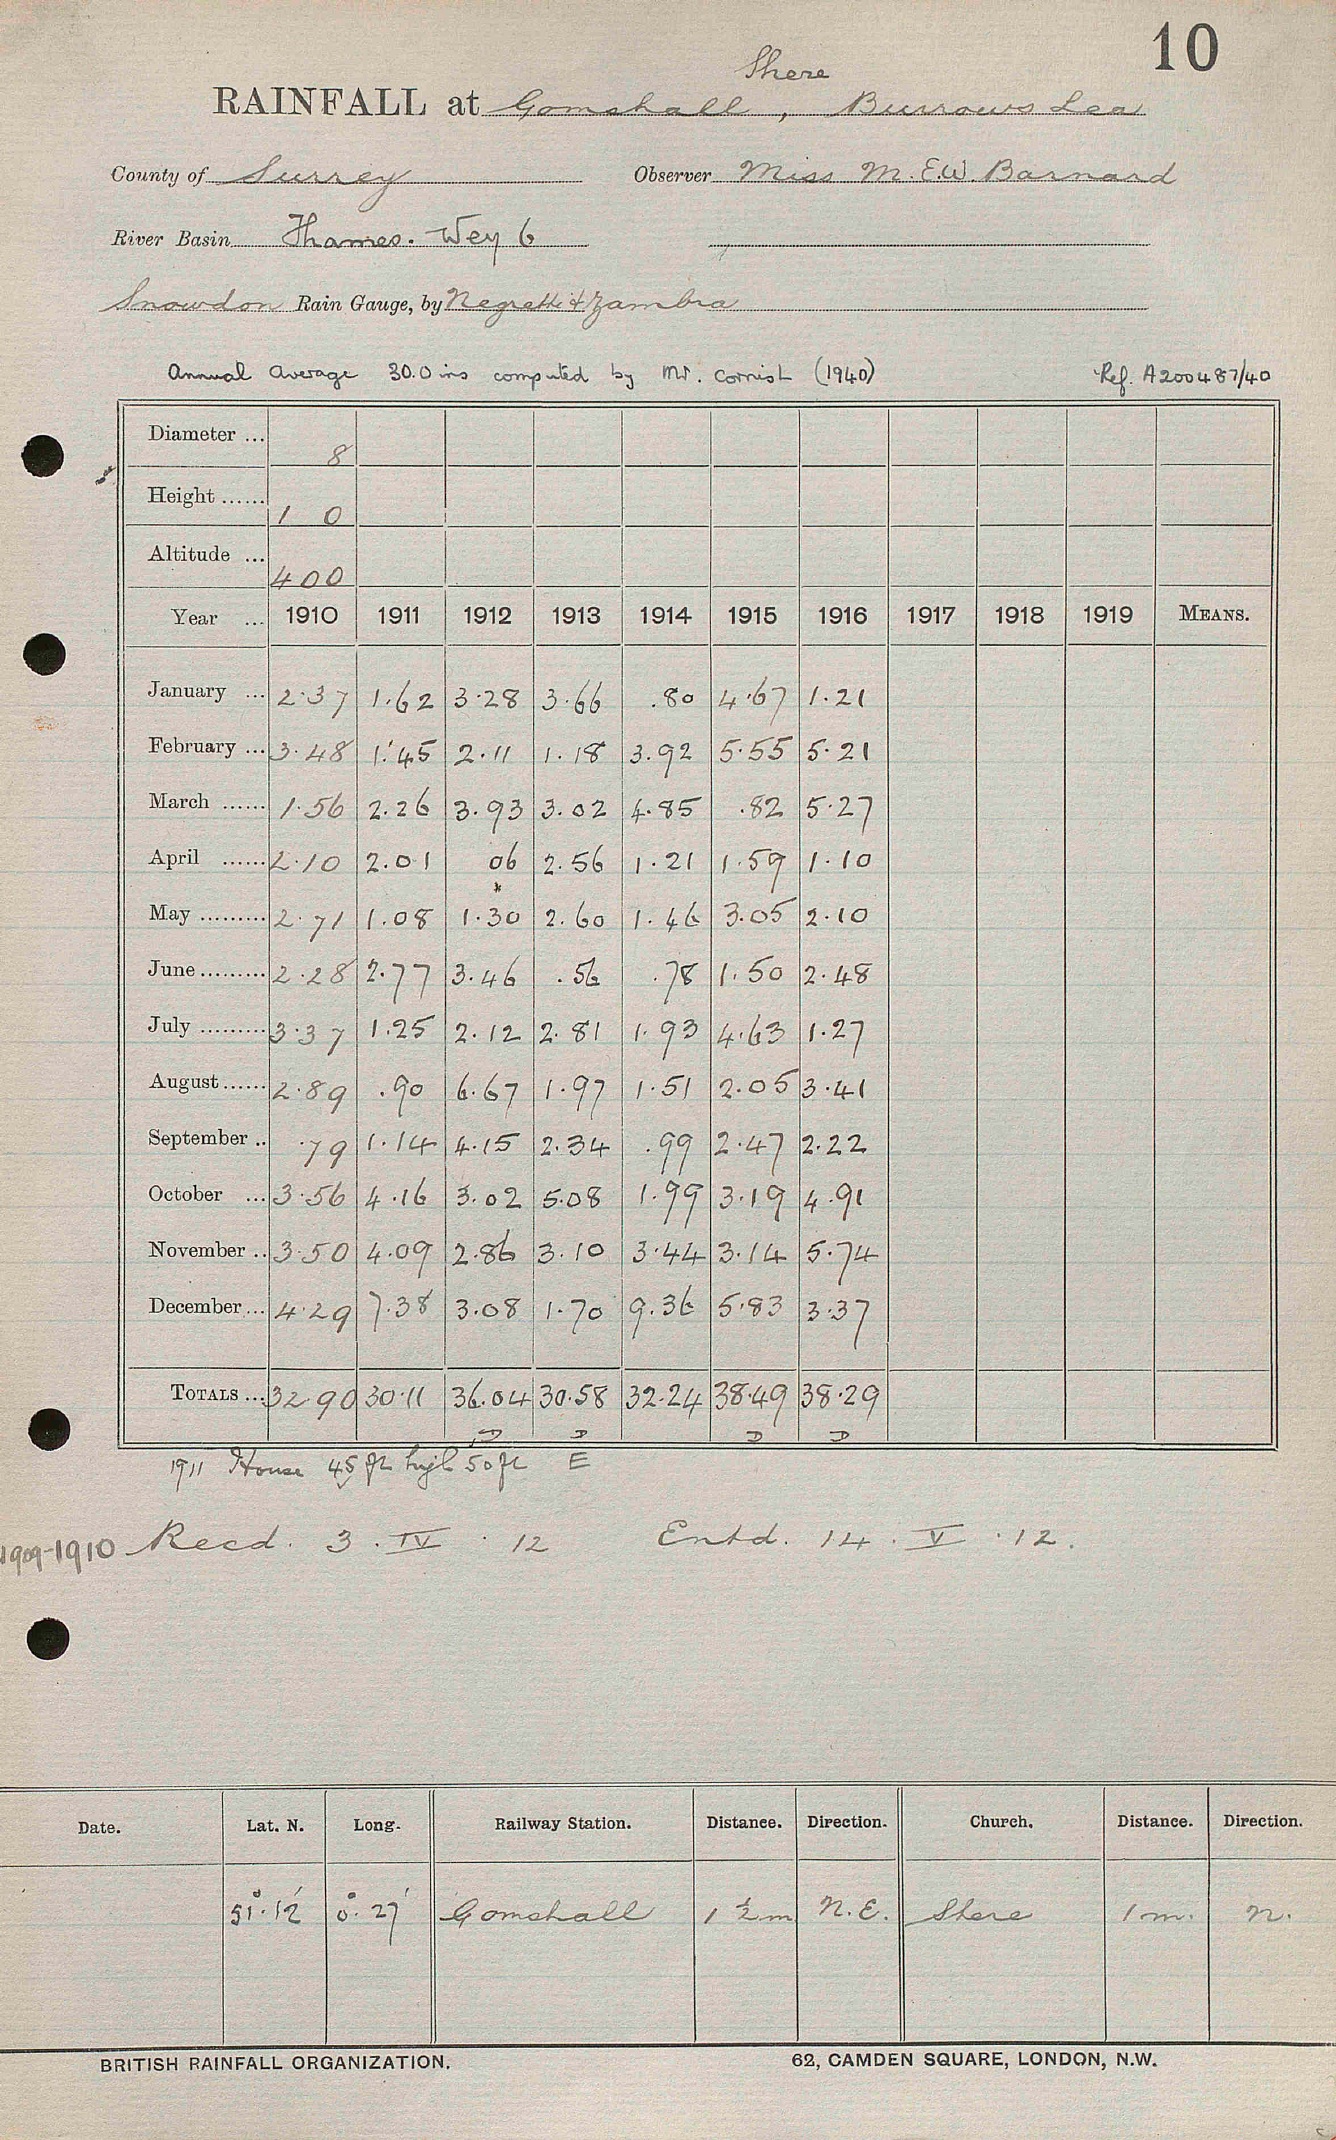 10
Shere
RAINFALL at Gomshall, Burrows Lea
County of Surrey Observer Miss M. E.W. Barnard
River Basin Thames. Wey 6
Snowdon Rain Gauge, by Negretti & Zambra
Annual Average 30.0 ins computed by Mr. Cornish (1940) Ref. A200487/40
Diameter ... 8
Height ...... 1 0
Altitude ... 400
Year ... 1910 1911 1912 1913 1914 1915 1916 1917 1918 1919 MEANS.
January ... 2.37 1.62 3.28 3.66 .80 4.67 1.21
February ... 3.48 1.45 2.11 1.18 3.92 5.55 5.21
March ...... 1.56 2.26 3.93 3.02 4.85 .82 5.27
April ...... 2.10 2.01 06 2.56 1.21 1.59 1.10
*
May ......... 2.71 1.08 1.30 2.60 1.46 3.05 2.10
June ......... 2.28 2.77 3.46 .56 .78 1.50 2.48
July ......... 3.37 1.25 2.12 2.81 1.93 4.63 1.27
August ...... 2.89 .90 6.67 1.97 1.51 2.05 3.41
September .. .79 1.14 4.15 2.34 .99 2.47 2.22
October ... 3.56 4.16 3.02 5.08 1.99 3.19 4.91
November .. 3.50 4.09 2.86 3.10 3.44 3.14 5.74
December ... 4.29 7.38 3.08 1.70 9.36 5.83 3.37
TOTALS ... 32.90 30.11 36.04 30.58 32.24 38.49 38.29
D D D D
1911 House 45 ft high 50 ft E
1909-1910 Recd. 3. IV. 12 Entd. 14. V. 12.
Date. Lat. N. Long. Railway Station. Distance. Direction. Church. Distance. Direction.
51°.12' 0°.27' Gomshall 1 ½ m N.E. Shere 1 m. N.
BRITISH RAINFALL ORGANIZATION. 62, CAMDEN SQUARE, LONDON, N.W.